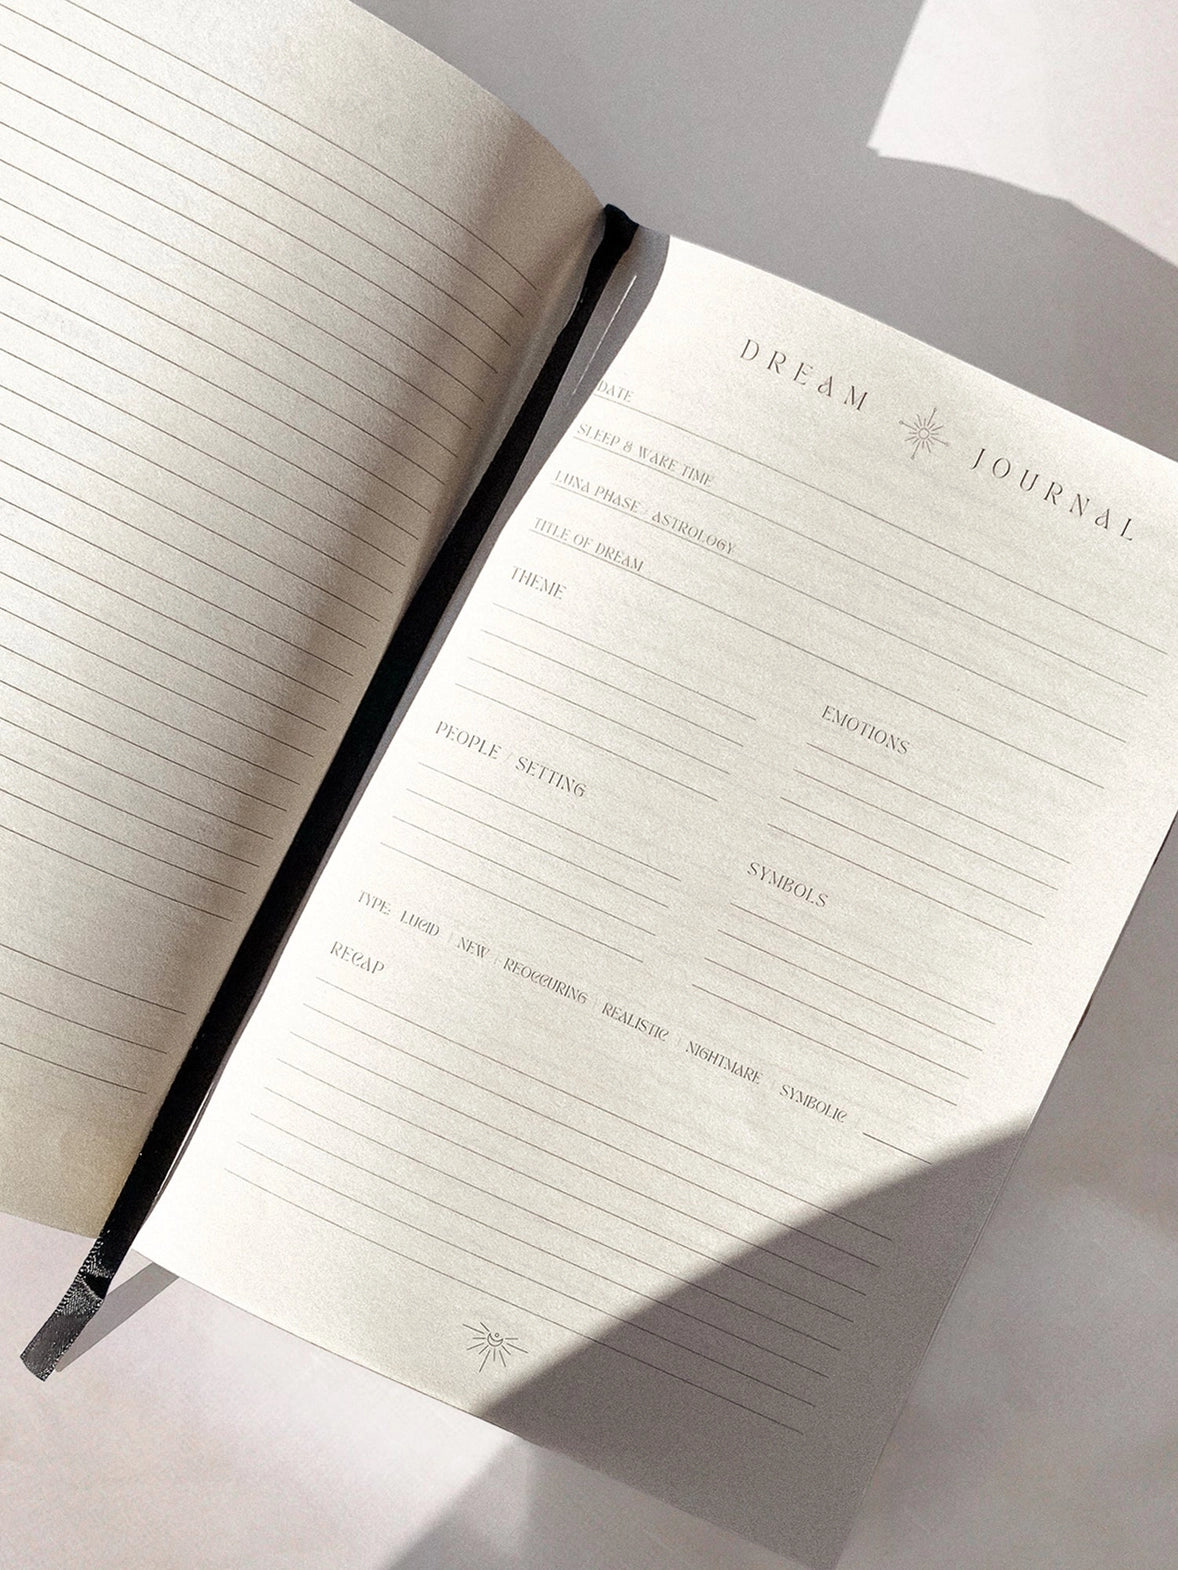 DREAM JOURNAL
DATE
SLEEP & WAKE TIME
LUNA PHASE / ASTROLOGY
TITLE OF DREAM
THEME
EMOTIONS
PEOPLE / SETTING
SYMBOLS
TYPE: LUCID | NEW | REOCCURING | REALISTIC | NIGHTMARE | SYMBOLIC |
RECAP